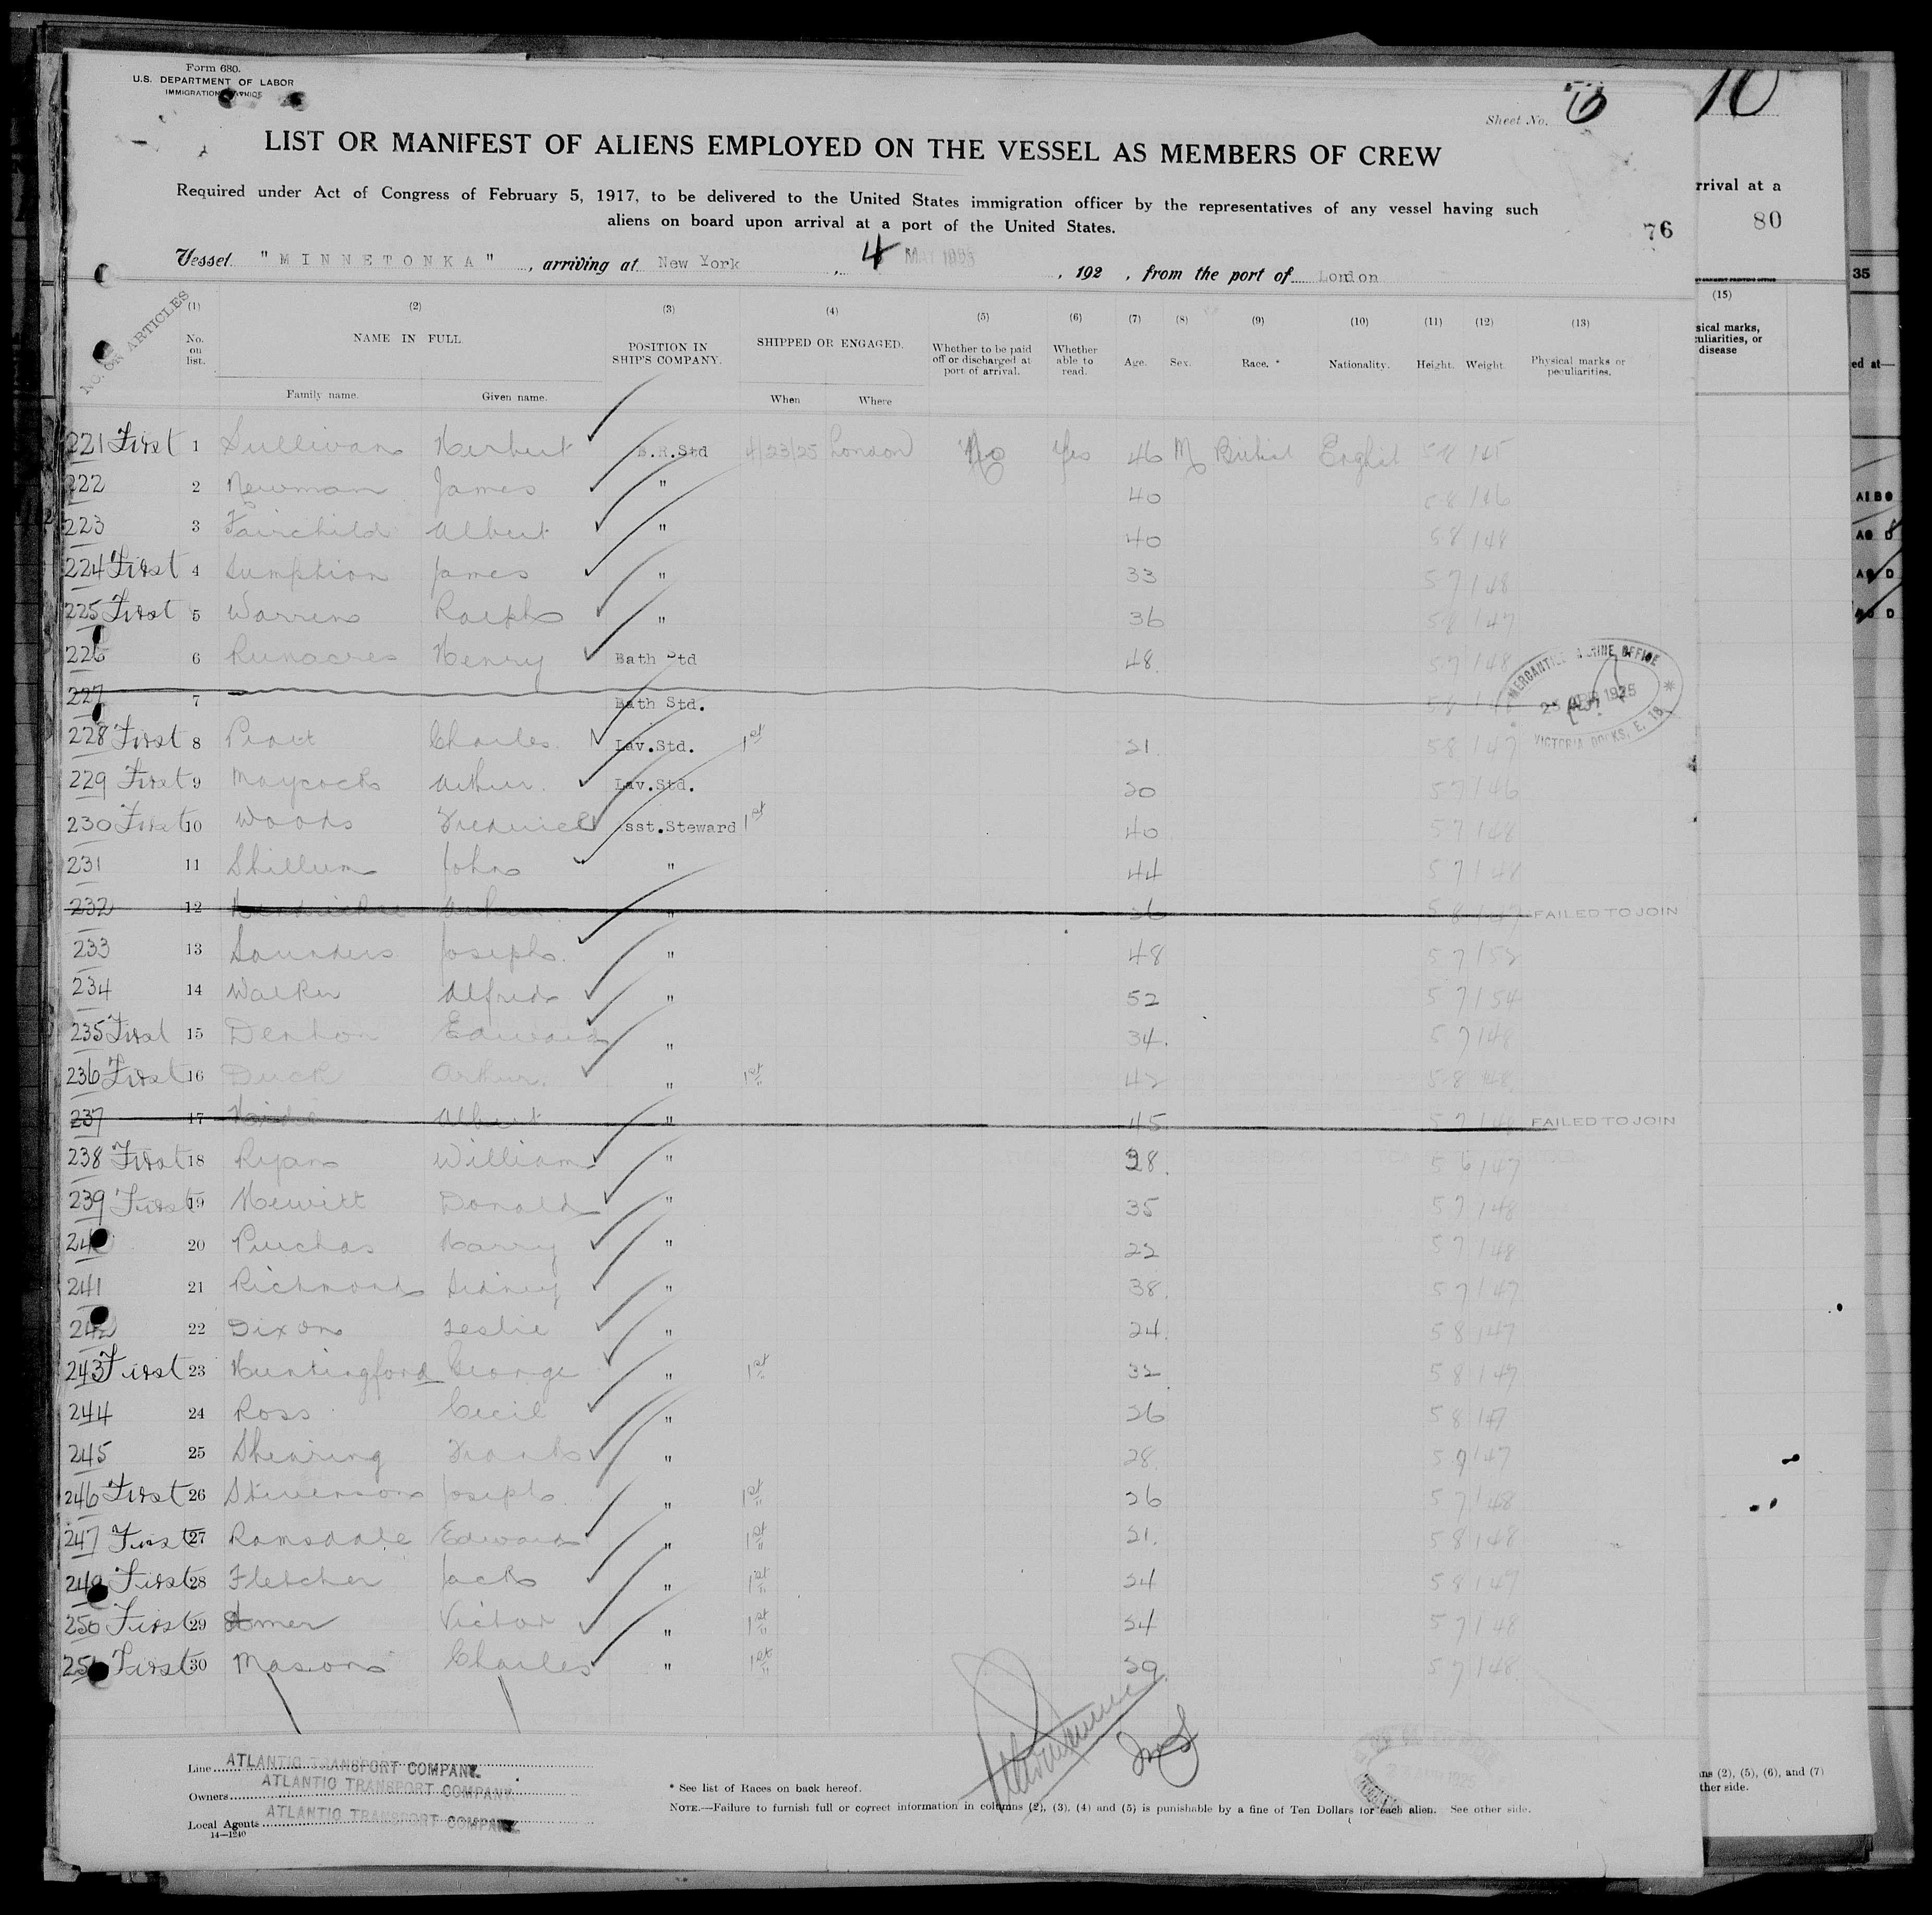 Form 680.
U.S. DEPARTMENT OF LABOR
IMMIGRATION
Sheet No.
10
LIST OR MANIFEST OF ALIENS EMPLOYED ON THE VESSEL AS MEMBERS OF CREW
Required under Act of Congress of February 5, 1917, to be delivered to the United States immigration officer by the representatives of any vessel having such
aliens on board upon arrival at a port of the United States.
rrival at a
76
80
Vessel "MINNETONKA", arriving at New York, 4 MAY, 192 , from the port of London
35
NO. ON ARTICLES
(1) (2) (3) (4) (5) (6) (7) (8) (9) (10) (11) (12) (13) (15)
No. on list. NAME IN FULL POSITION IN SHIP'S COMPANY. SHIPPED OR ENGAGED. Whether to be paid off or discharged at port of arrival. Whether able to read. Age. Sex. Race. * Nationality. Height. Weight. Physical marks or peculiarities.
sical marks,
culiarities, or
disease
ed at—
Family name. Given name. When Where
221 First 1 Sullivan Herbert B.R.Std 4/23/25 London No Yes 46 M British English 5 8 145
222 2 Newman James " 40 5 8 146
223 3 Fairchild Albert " 40 5 8 148
224 First 4 Sumption James " 33 5 7 148
225 First 5 Warren Ralph " 36 5 8 147
226 6 Runacres Henry Bath Std 48 5 7 148
227 7 Bath Std.
MERCANTILE MARINE OFFICE
VICTORIA DOCKS, E. 16
228 First 8 Pratt Charles Lav.Std. 1st 21 5 8 147
229 First 9 Maycock Arthur Lav.Std. 20 5 7 146
230 First 10 Woods Frederick Asst.Steward 1st 40 5 7 148
231 11 Shillum John " 44 5 7 148
232 12 " 36 5 8 147 FAILED TO JOIN
233 13 Saunders Joseph " 48 5 7 158
234 14 Walker Alfred " 52 5 7 154
235 First 15 Denton Edward " 34. 5 7 148
236 First 16 Duck Arthur. " 1st 42 5 8 148
237 17 Albert " 45 5 7 148 FAILED TO JOIN
238 First 18 Ryan William " 38. 5 6 147
239 First 19 Hewitt Donald " 35 5 7 148
240 20 Purchas Harry " 22 5 7 148
241 21 Richmond Sidney " 38. 5 7 147
242 22 Dixon Leslie " 24. 5 8 147
243 First 23 Huntingford George " 1st 32 5 8 147
244 24 Ross Cecil " 26 5 8 147
245 25 Shearing Frank " 28. 5 9 147
246 First 26 Stevenson Joseph " 1st 26 5 7 148
247 First 27 Ramsdale Edward " 1st 21. 5 8 148
249 First 28 Fletcher Jack " 1st 24 5 8 147
250 First 29 Amer Victor " 1st 24 5 7 148
251 First 30 Mason Charles " 1st 29. 5 7 148
Line ATLANTIC TRANSPORT COMPANY.
Owners ATLANTIC TRANSPORT COMPANY
Local Agents ATLANTIC TRANSPORT COMPANY
14—1240
* See list of Races on back hereof.
NOTE.—Failure to furnish full or correct information in columns (2), (3), (4) and (5) is punishable by a fine of Ten Dollars for each alien. See other side.
ns (2), (5), (6), and (7)
ther side.